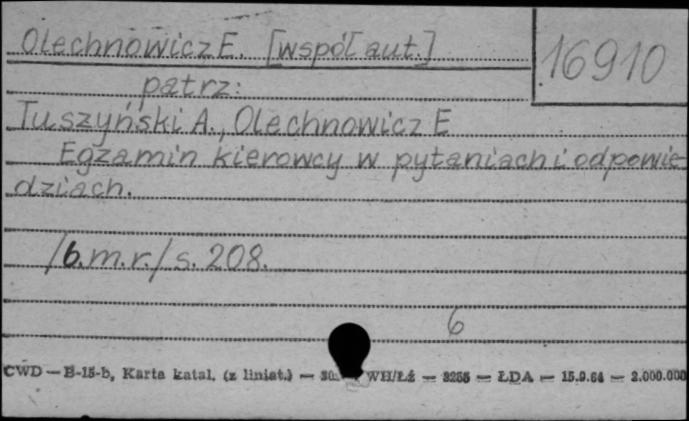 Olechnowicz E. [współ aut.]
16910
patrz:
Tuszyński A., Olechnowicz E
Egzamin kierowcy w pytaniach i odpowie
dziach.
/b.m.r./ s. 208.
6
CWD — B-15-b, Karta katal. (z liniat.) — WH/Łź — 3255 — ŁDA — 15.9.64 — 2.000.000